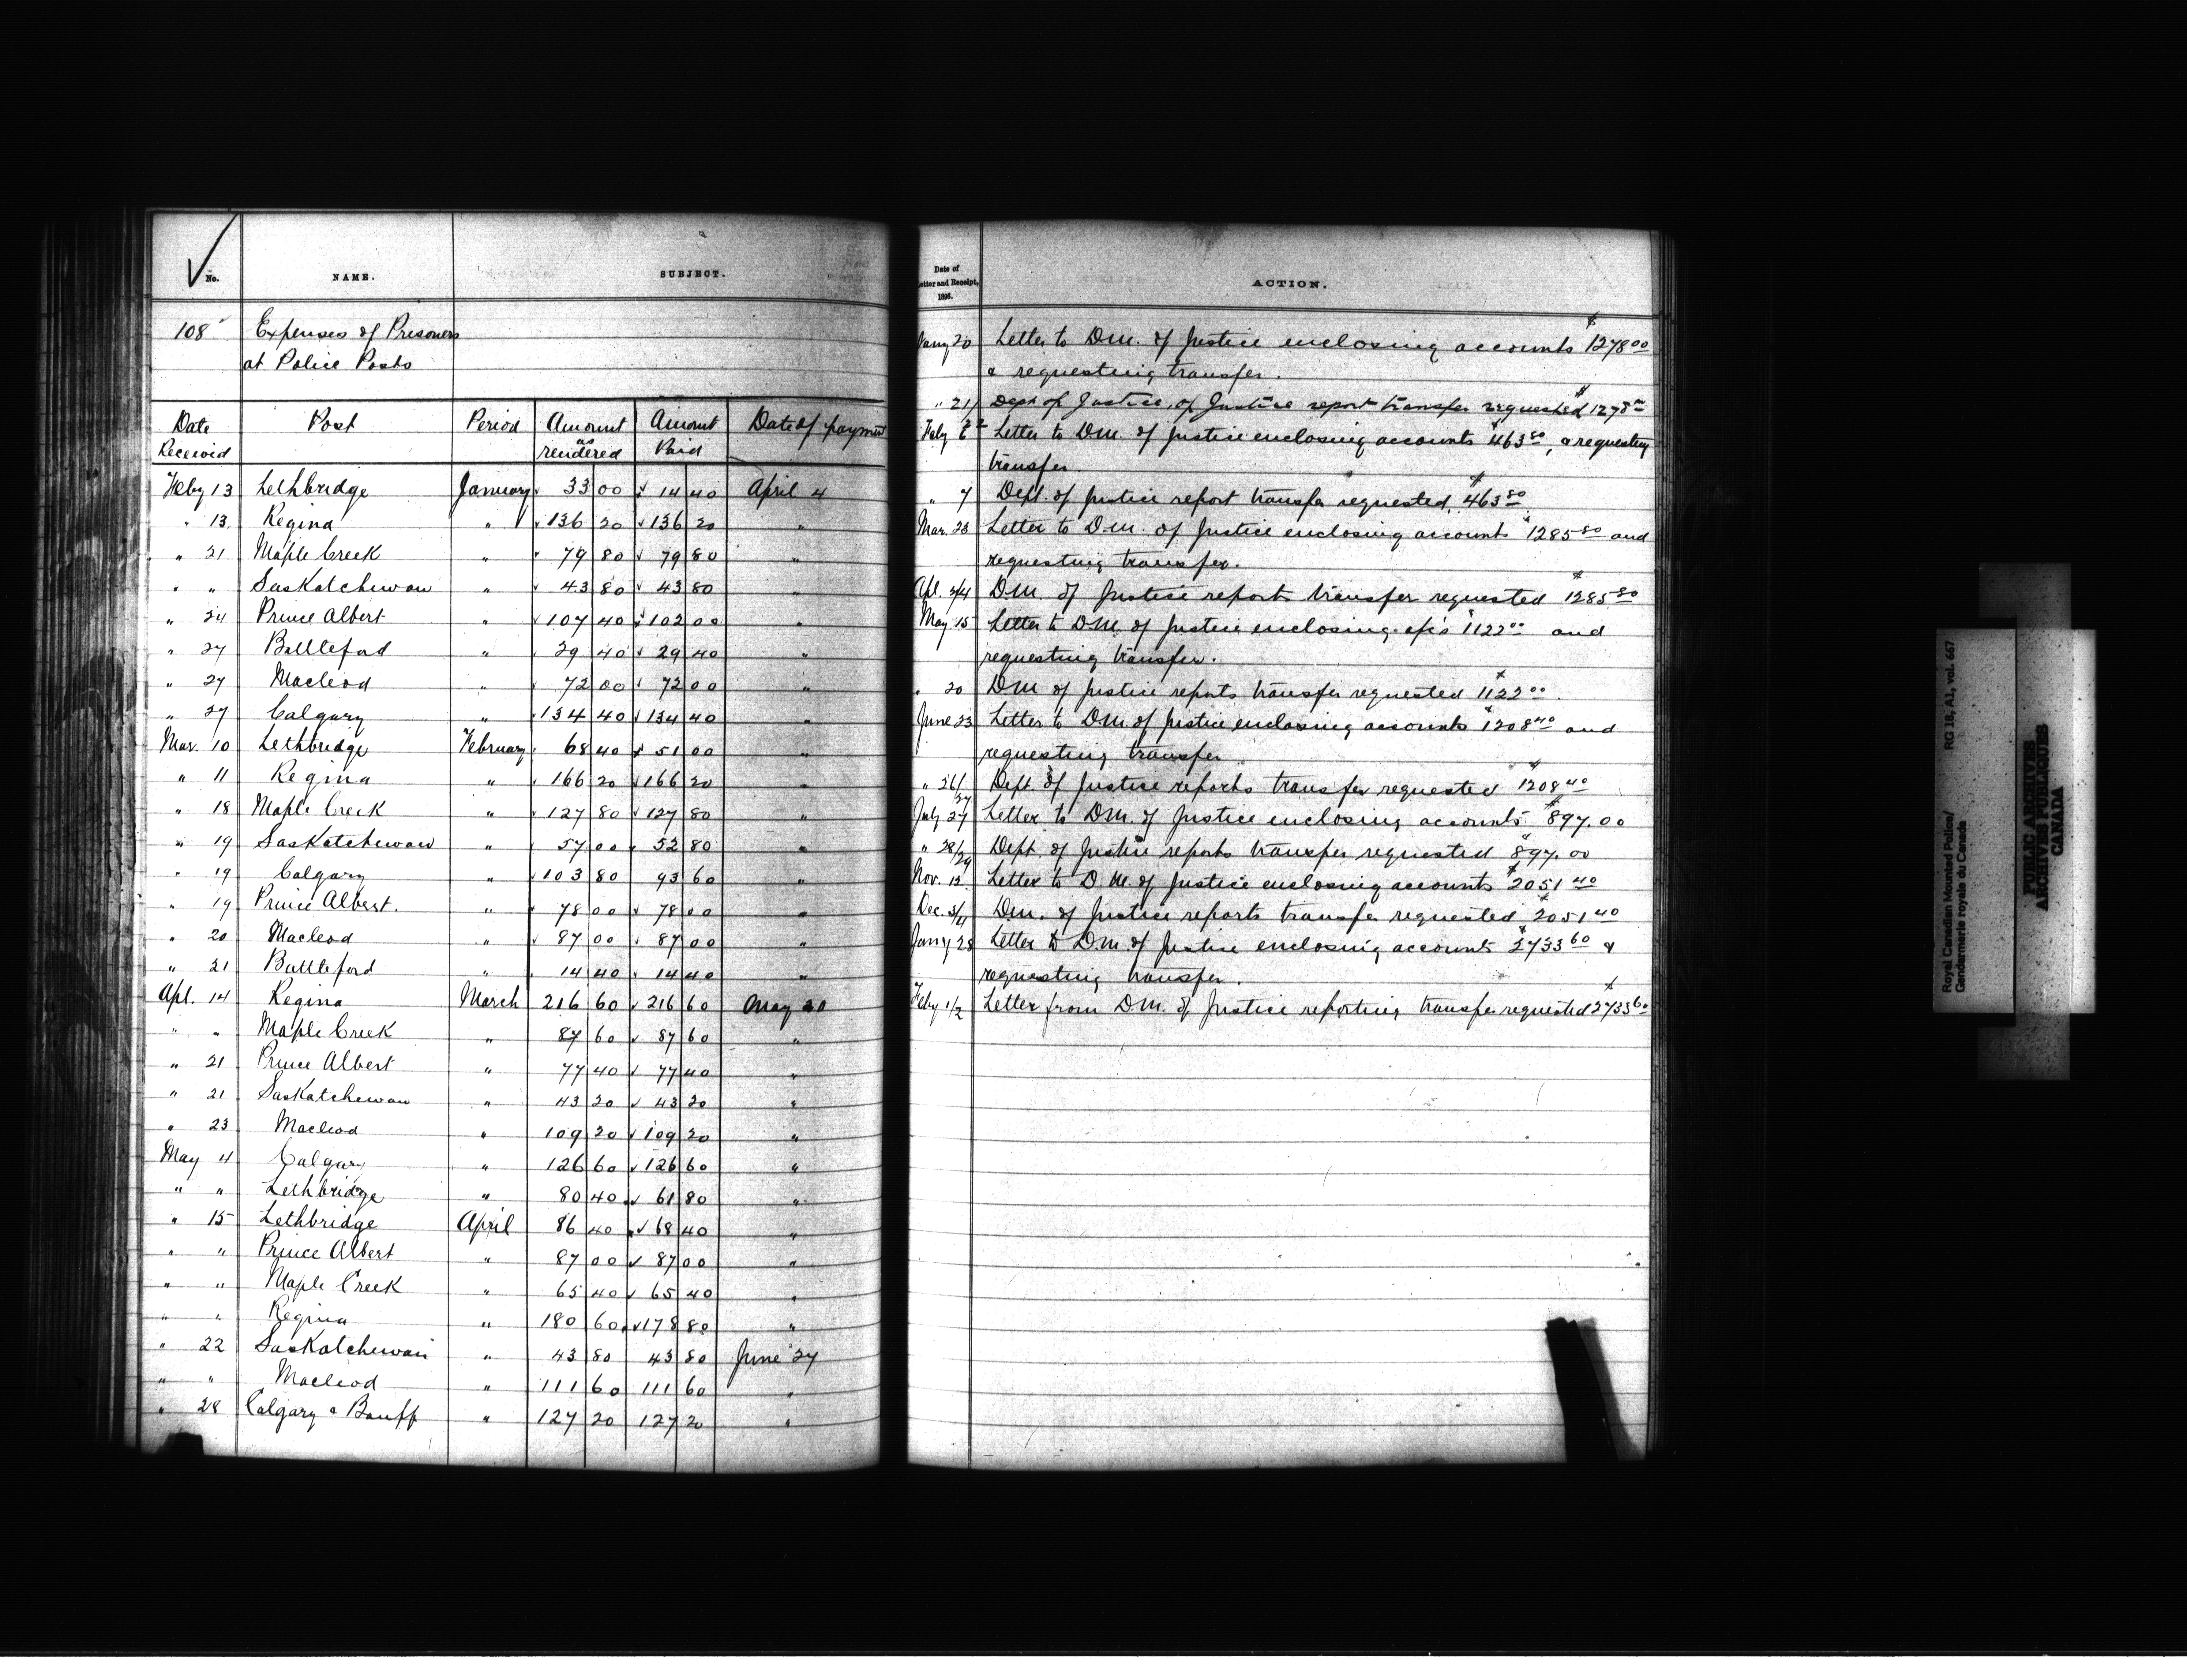 No. NAME. SUBJECT.
108 Expenses of Prisoners
at Police Posts
Date Received Post Period Amount as rendered Amount Paid Date of payment
Feby 13 Lethbridge January 33 00 14 40 April 4
" 13 Regina " 136 20 136 20 "
" 21 Maple Creek " 79 80 79 80 "
" " Saskatchewan " 43 80 43 80 "
" 24 Prince Albert " 107 40 102 00 "
" 27 Battleford " 29 40 29 40 "
" 27 Macleod " 72 00 72 00 "
" 27 Calgary " 134 40 134 40 "
Mar. 10 Lethbridge February 68 40 51 00 "
" 11 Regina " 166 20 166 20 "
" 18 Maple Creek " 127 80 127 80 "
" 19 Saskatchewan " 57 00 52 80 "
" 19 Calgary " 103 80 93 60 "
" 19 Prince Albert. " 78 00 78 00 "
" 20 Macleod " 87 00 87 00 "
" 21 Battleford " 14 40 14 40 "
Apl. 14 Regina March 216 60 216 60 May 20
" " Maple Creek " 87 60 87 60 "
" 21 Prince Albert " 77 40 77 40 "
" 21 Saskatchewan " 43 20 43 20 "
" 23 Macleod " 109 20 109 20 "
May 4 Calgary " 126 60 126 60 "
" " Lethbridge " 80 40 61 80 "
" 15 Lethbridge April 86 40 68 40 "
" " Prince Albert " 87 00 87 00 "
" " Maple Creek " 65 40 65 40 "
" " Regina " 180 60 178 80 "
" 22 Saskatchewan " 43 80 43 80 June 27
" " Macleod " 111 60 111 60 "
" 28 Calgary & Banff " 127 20 127 20 "
Date of Letter and Receipt, 1896. ACTION.
Jany 20 Letter to D.M. of Justice enclosing accounts $1278 00
& requesting transfer.
" 21 Dept of Justice, of Justice report transfer requested $1278 00
Feby Letter to D.M. of Justice enclosing accounts $463 80, & requesting
transfer.
" 7 Dept. of Justice report transfer requested, $463 80
Mar. 23 Letter to D.M. of Justice enclosing accounts $1285 80 and
requesting transfer.
Apl. 2/4 D.M. of Justice reports transfer requested $1285 80
May 15 Letter to D.M. of Justice enclosing a/c's $1122 00 and
requesting transfer.
" 20 DM of Justice reports transfer requested $1122 00.
June 23 Letter to D.M. of Justice enclosing accounts $1208 40 and
requesting transfer
" 26/27 Dept of Justice reports transfer requested $1208 40
July 27 Letter to DM. of Justice enclosing accounts $897.00
" 28/29 Dept. of Justice reports transfer requested $897.00
Nov. 12 Letter to D.M. of Justice enclosing accounts $2051 40
Dec. 3/4 D.M. of Justice reports transfer requested $2051 40
Jany 28 Letter to D.M. of Justice enclosing accounts $2733 60 &
requesting transfer.
Feby 1/2 Letter from D.M. of Justice reporting transfer requested $2733 60
Royal Canadian Mounted Police/ RG 18, A1, vol. 667
Gendarmerie royale du Canada
PUBLIC ARCHIVES
ARCHIVES PUBLIQUES
CANADA